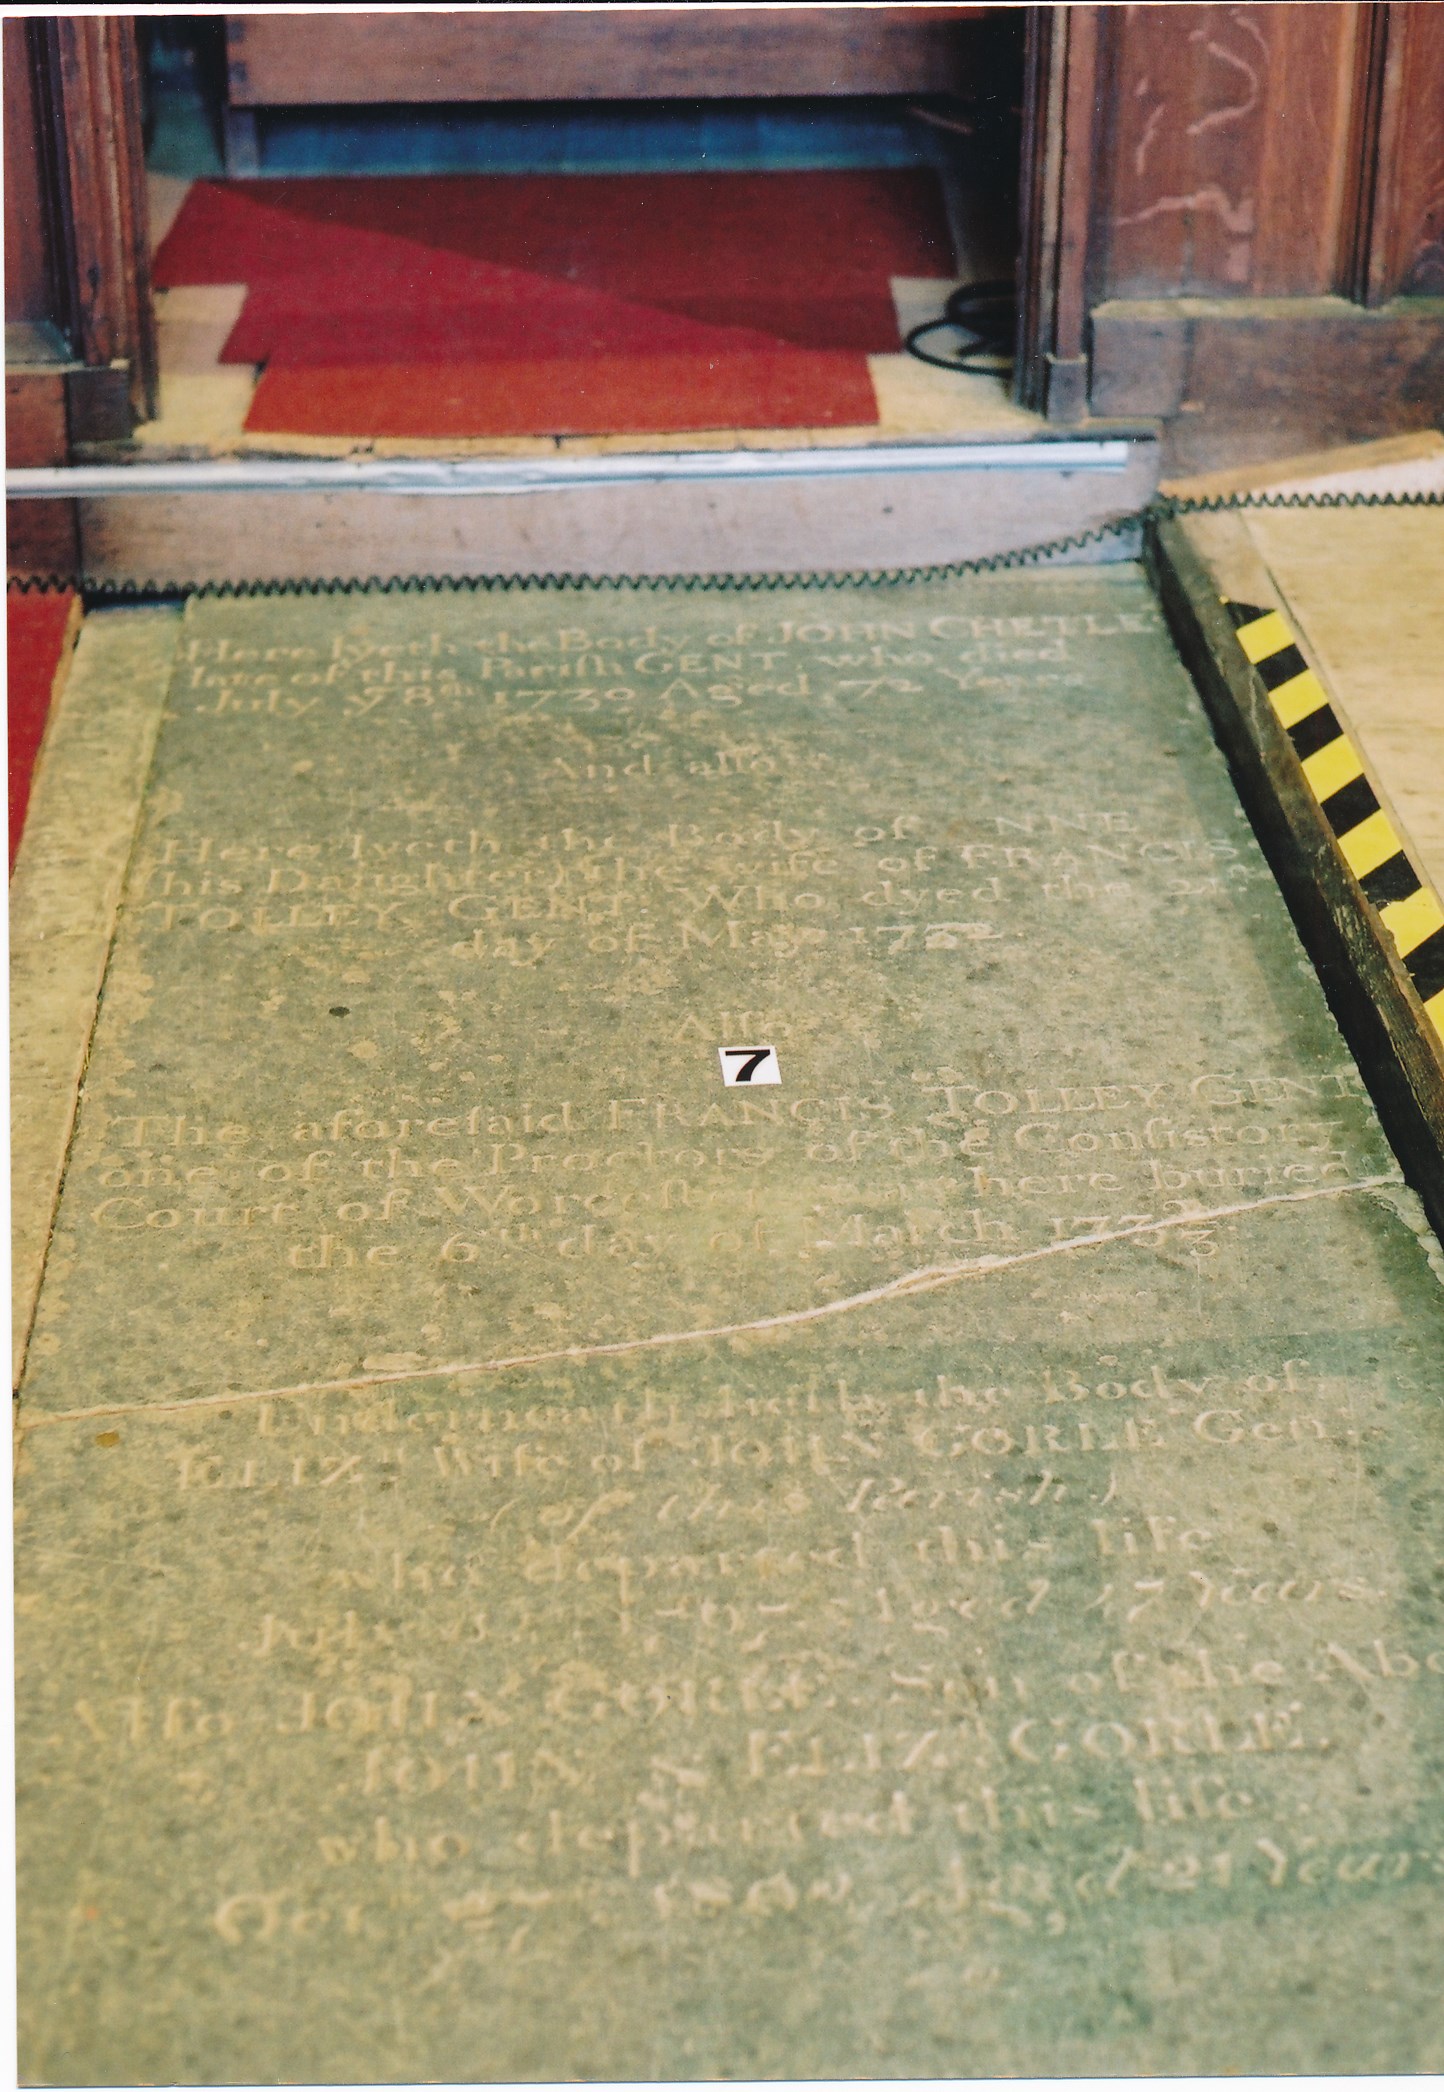 Here lyeth the Body of JOHN CHETLE
late of this Pariſh GENT. who died
July yᵉ 8ᵗʰ 1730 Aged 72 Years
And alſo
Here lyeth the Body of NNE
(his Daughter) the wife of FRANCIS
TOLLEY, GENT. Who dyed the 21ˢᵗ
day of May
Alſo
7
The aforeſaid FRANCIS TOLLEY GENT
one of the Proctors of the Conſistory
Court of Worceſter here buried
the 6ᵗʰ day of March 173⅔
Underneath lieth the Body of
ELIZ. Wife of JOHN GORLE Gen.
(of this Parish)
who departed this life
Aged 17 Years.
Alſo JOHN GORLE. Son of the Abo
JOHN & ELIZ. GORLE.
who departed this life
Oct 27 Aged 21 Years